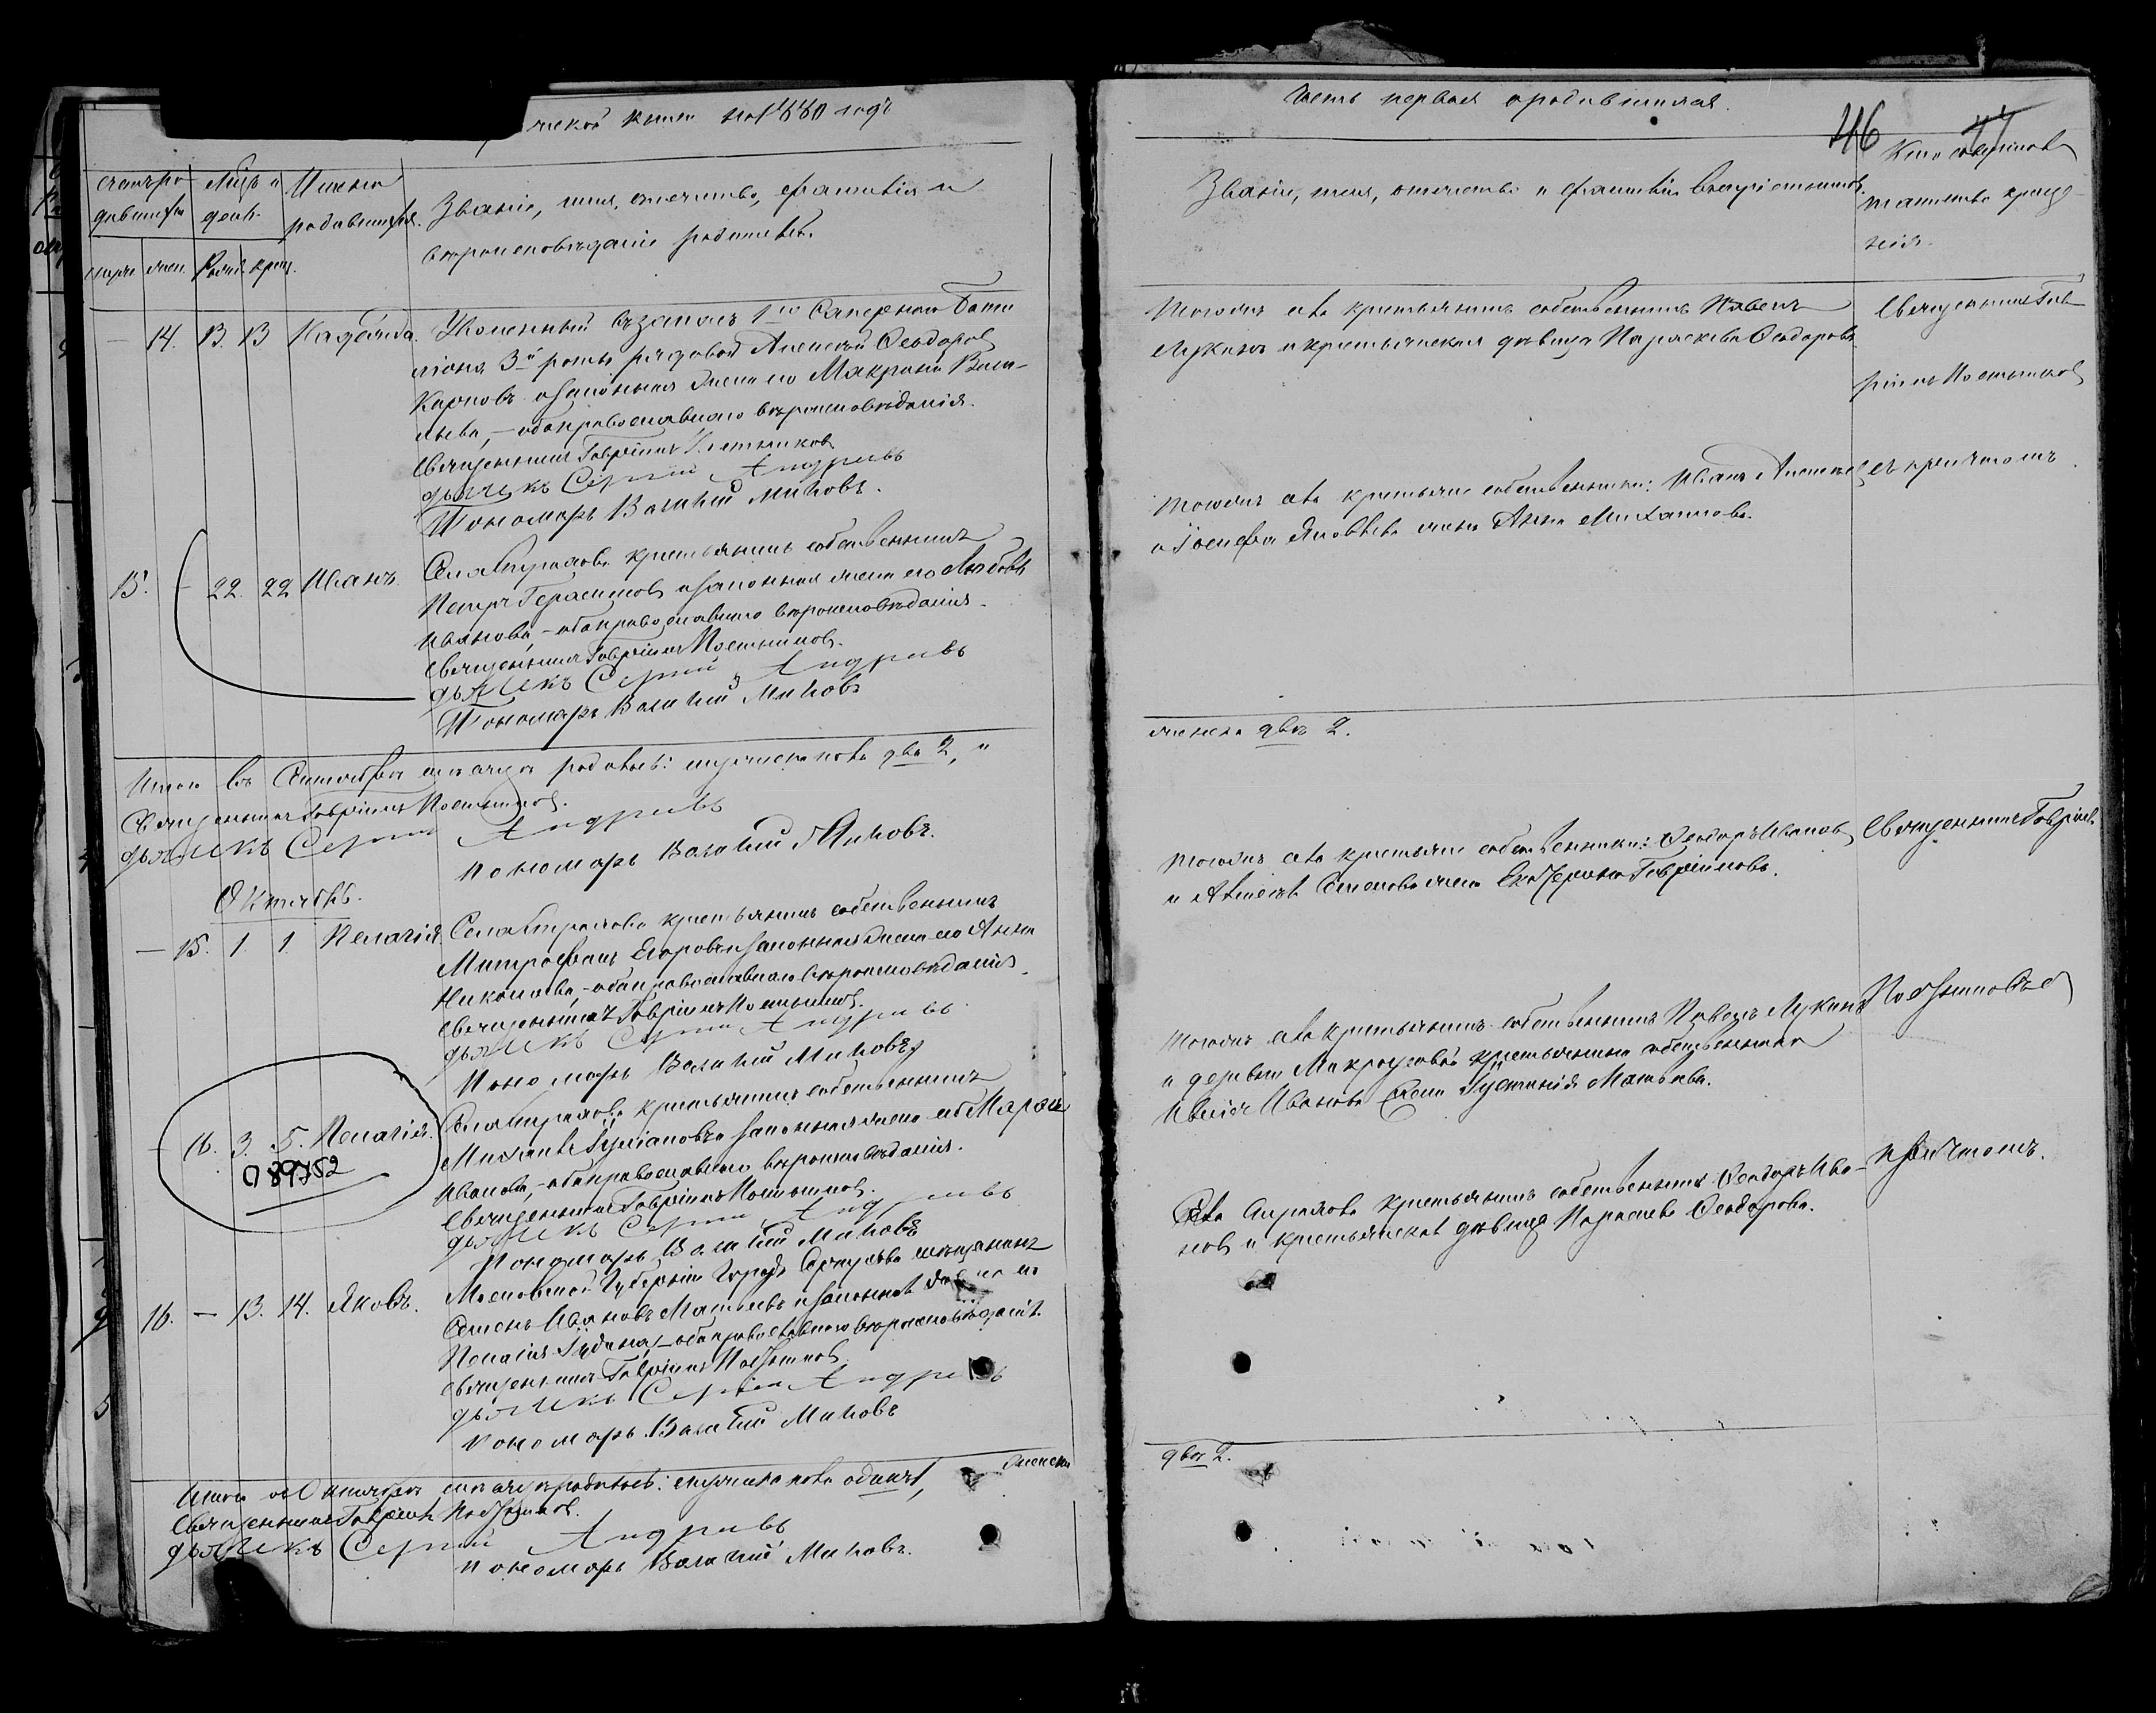 ческой книги на 1880 годъ
Счетъ ро
дившихся
Мѣсяцъ и
день.
Имена
родившихся.
Званіе, имя, отчество, фамилія и
вѣроисповѣданіе родителей.
мужс. жен. Рожд. крещ.
— 14. 13. 13
Уволенный въ запасъ 1го Сапернаго бата
ліона 3й роты рядовой Алексѣй Ѳеодоровъ
Карповъ и законная жена его Макрина Васи-
льева, — оба православнаго вѣроисповѣданія.
Священникъ Гавріилъ Постниковъ
дьячекъ Сергій Андреевъ
Пономарь Василій Миловъ.
15. — 22. 22 Иванъ.
Села крестьянинъ собственникъ
Петръ Герасимовъ и законная жена его Любовь
Иванова, — оба православнаго вѣроисповѣданія.
Священникъ Гавріилъ Постниковъ.
дьячекъ Сергій Андреевъ
Пономарь Василій Миловъ
Итого въ Сентябрѣ мѣсяцѣ родилось: мужеска пола два 2, и
Священникъ Гавріилъ Постниковъ.
дьячекъ Сергій Андреевъ
пономарь Василій Миловъ.
Октябрь.
— 15. 1. 1. Пелагія.
Села крестьянинъ собственникъ
Митрофанъ Егоровъ и законная жена его Анна
Николаева, — оба православнаго вѣроисповѣданія.
Священникъ Гавріилъ Постниковъ.
дьячекъ Сергій Андреевъ
Пономарь Василій Миловъ
— 16. 3. 5. Пелагія.
089752
Села крестьянинъ собственникъ
Михаилъ и законная жена его Марѳа
Иванова, — оба православнаго вѣроисповѣданія.
Священникъ Гавріилъ Постниковъ.
дьячекъ Сергій Андреевъ
Пономарь Василій Миловъ
16. — 13. 14. Яковъ.
Московской Губерніи Города Серпухова мѣщанинъ
Семенъ Ивановъ Матвѣевъ и законная жена его
Пелагія Іудина, — оба православнаго вѣроисповѣданія.
Священникъ Гавріилъ Постниковъ
дьячекъ Сергій Андреевъ
пономарь Василій Миловъ
Итого въ Октябрѣ мѣсяцѣ родилось: мужеска пола одинъ 1, женска
Священникъ Гавріилъ Постниковъ.
дьячекъ Сергій Андреевъ
пономарь Василій Миловъ.
Часть первая о родившихся.
46
Званіе, имя, отчество и фамилія воспріемниковъ.
Кто совершалъ
таинство креще-
нія.
Тогожъ села крестьянинъ собственникъ Павелъ
Лукинъ и крестьянская дѣвица Параскева Ѳеодорова
Священникъ Гав
ріилъ Постниковъ
Тогожъ села крестьяне собственники: Иванъ Алексѣевъ
и Іосифа Яковлева жена Анна Михаилова.
съ причтомъ.
женска двѣ 2.
Тогожъ села крестьяне собственники: Ѳеодоръ Ивановъ
и Алексѣя Семенова жена Екатерина Гавріилова.
Священникъ Гавріилъ
Тогожъ села крестьянинъ собственникъ Павелъ Лукинъ
и деревни крестьянина собственника
Ивана Иванова жена Іустинія Матвѣева.
Постниковъ съ
Села крестьянинъ собственникъ Ѳеодоръ Ива-
новъ и крестьянская дѣвица Параскева Ѳеодорова.
причтомъ.
двѣ 2.